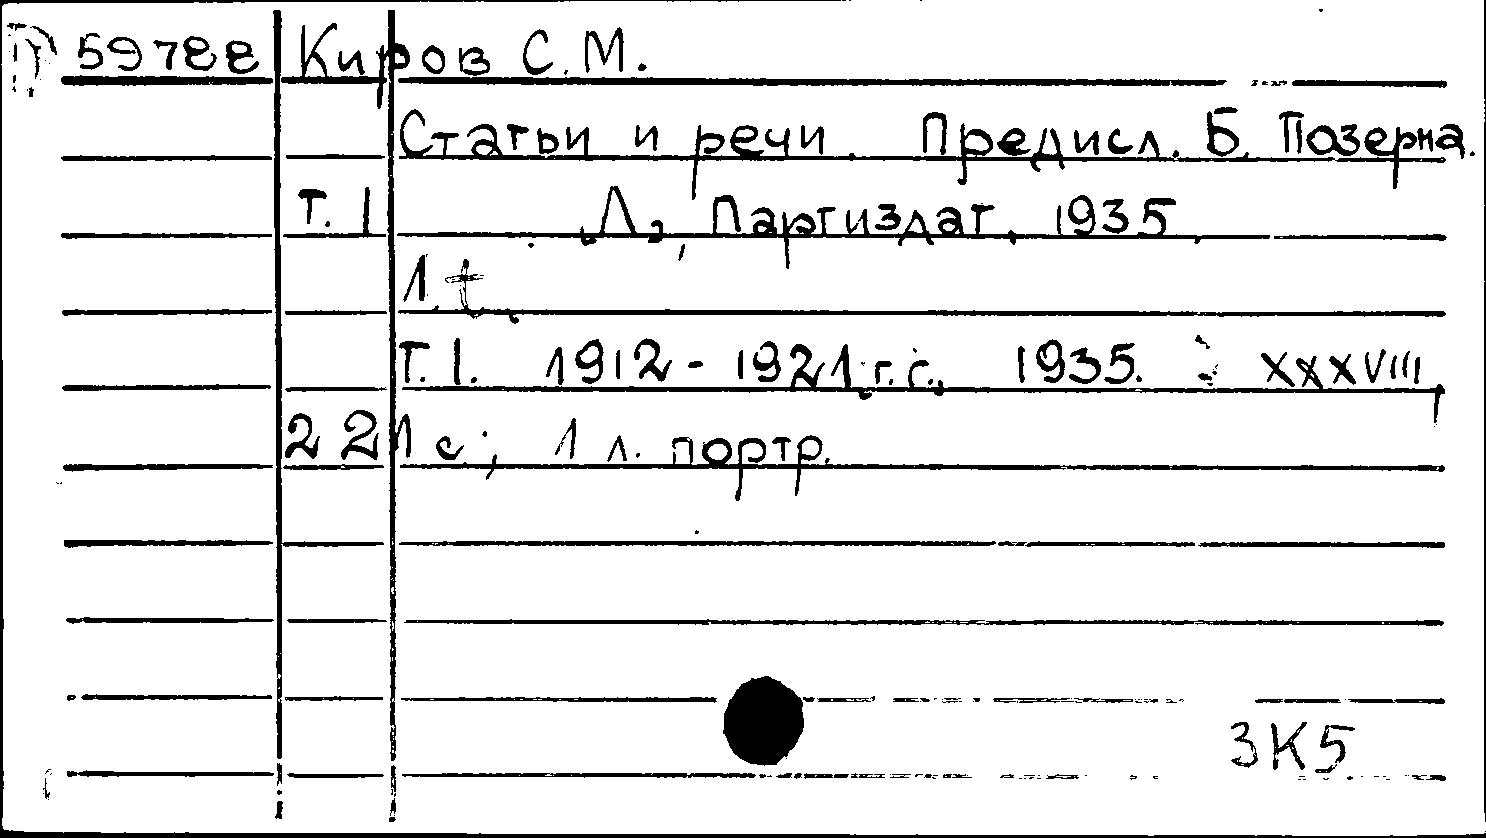 П 59788 Киров С.М.
Статьи и речи. Предисл. Б. Позерна.
Т. I Л., Партиздат, 1935.
1.t.
Т. I. 1912 - 1921 г.г., 1935. XXXVIII,
221 с; 1 л. портр.
3К5